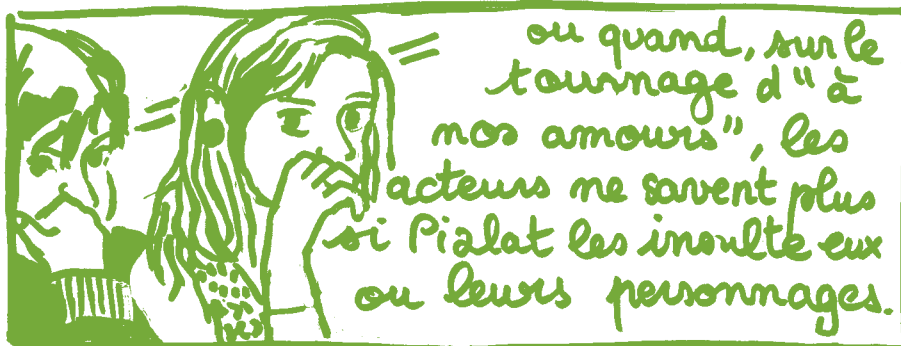 ou quand, sur le
tournage d'"à
nos amours", les
acteurs ne savent plus
si Pialat les insulte eux
ou leurs personnages.